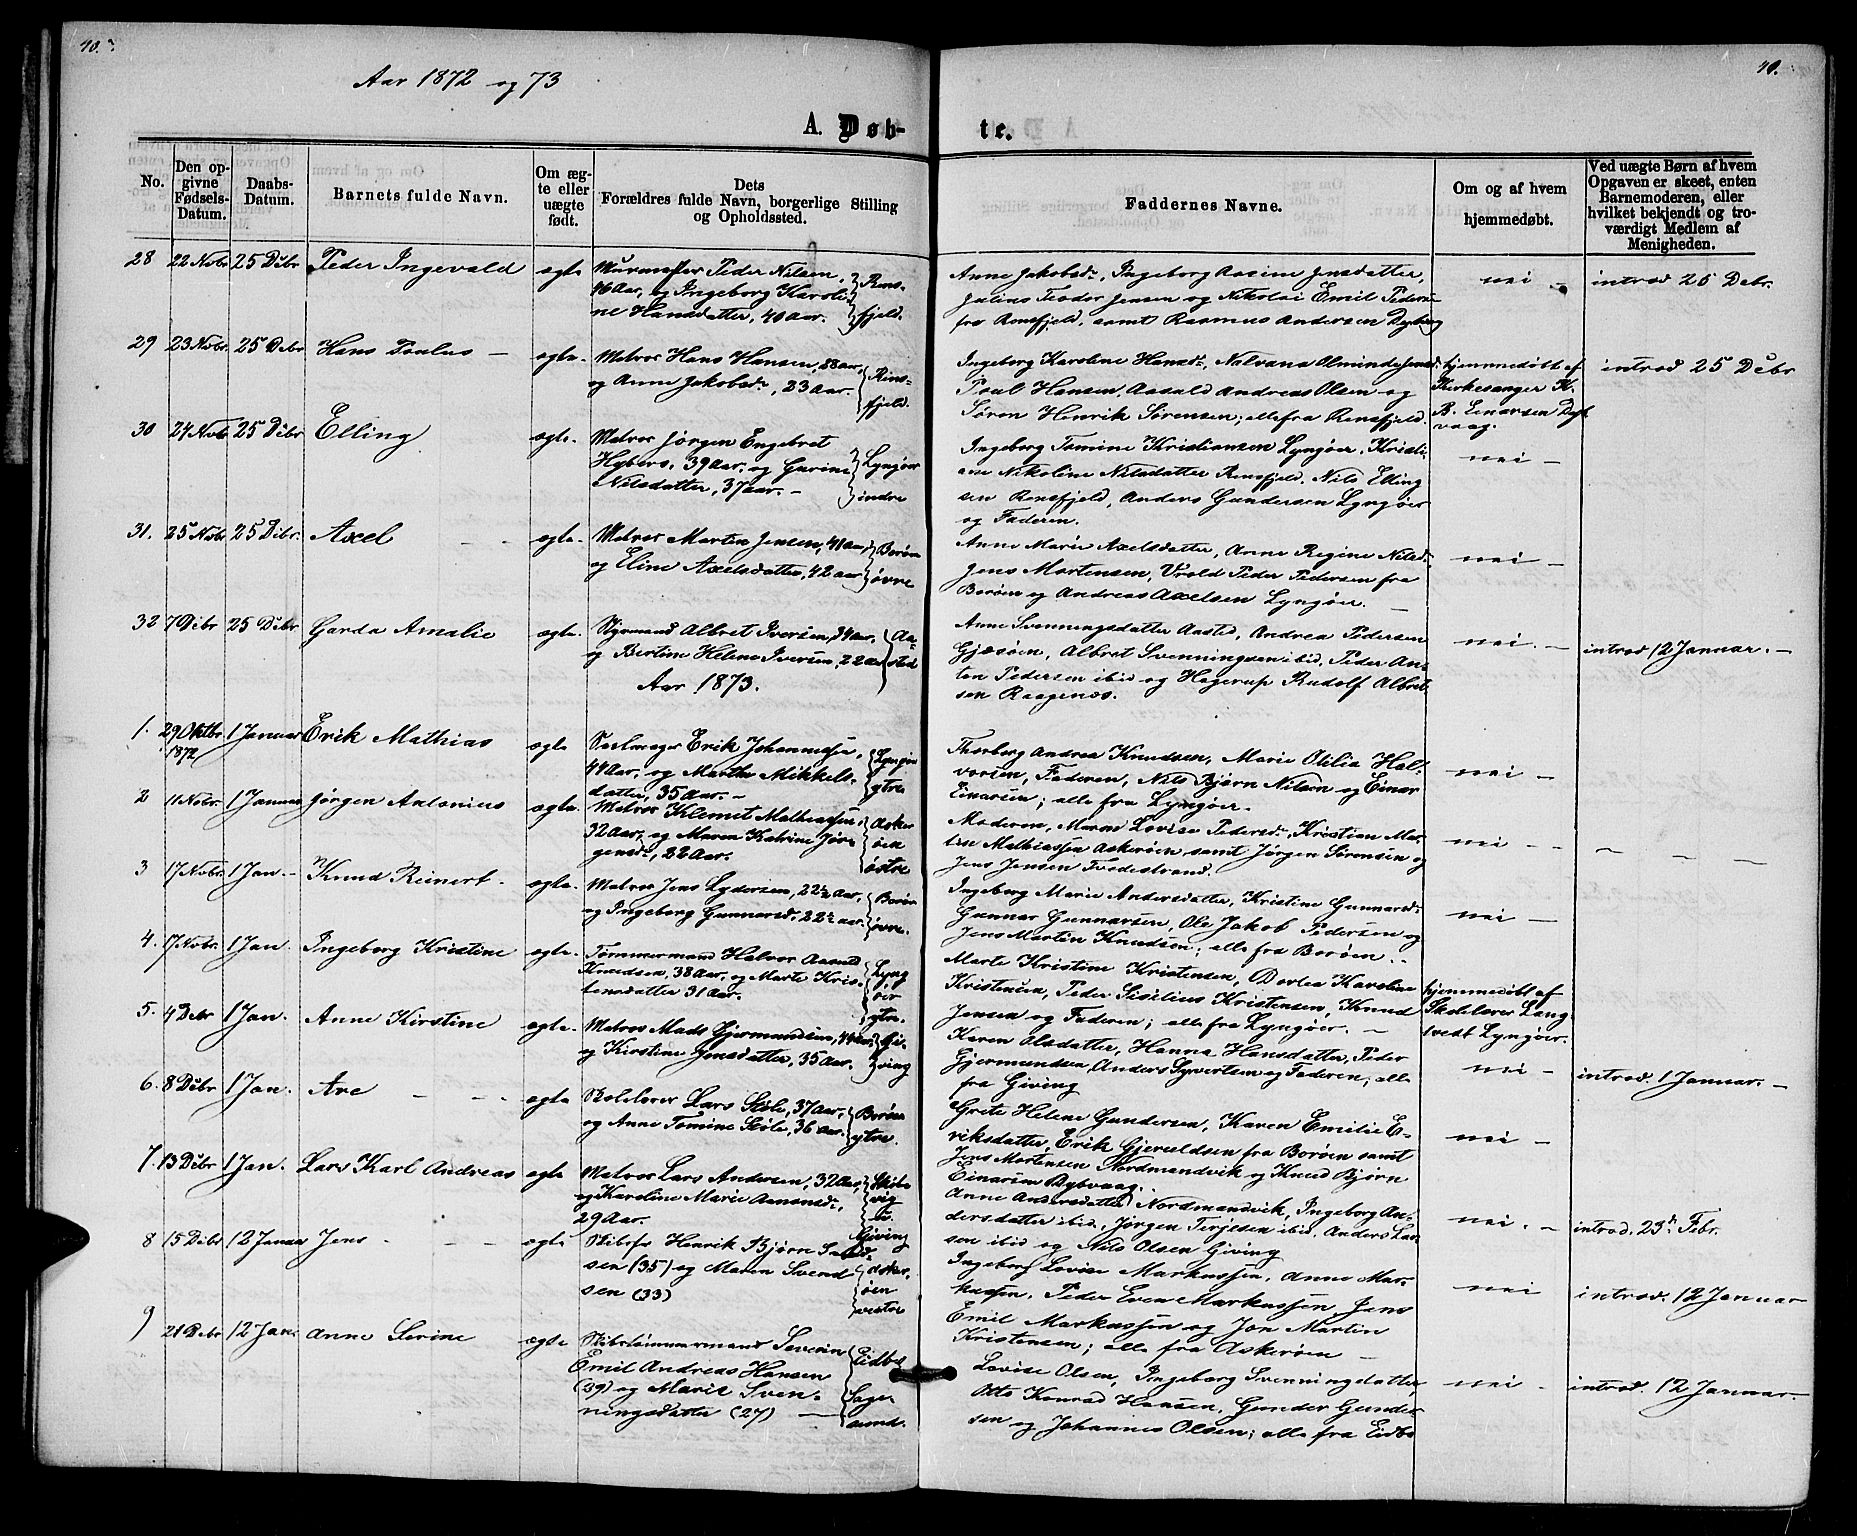 40.
40.
Aar 1872 og 73
A. Døb-
te.
No.
Den op-
givne
Fødsels-
Datum.
Daabs-
Datum.
Barnets fulde Navn.
Om æg-
te eller
uægte
født.
Dets
Forældres fulde Navn, borgerlige Stilling
og Opholdssted.
Faddernes Navne.
Om og af hvem
hjemmedøbt.
Ved uægte Børn af hvem
Opgaven er skeet, enten
Barnemoderen, eller
hvilket bekjendt og tro-
værdigt Medlem af
Menigheden.
28 22 Nobr 25 Debr Peder Ingevald ægte
Murmester Peder Nilsen,
46 Aar, og Ingeborg Karoli
ne Hansdatter, 40 Aar.
Rens-
fjeld.
Anne Jakobsdr, Ingeborg Aasine Jensdatter,
Julius Teodor Jensen og Nikolai Emil Peders
fra Rensfjeld, samt Rasmus Andersen Dybvaag
nei -
introd 25 Debr.
29 23 Nobr 25 Debr Hans Paulus - ægte
Matros Hans Hansen, 28 aar,
og Anne Jakobsdr, 23 Aar.
Rens-
fjeld.
Ingeborg Karoline Hansdr,
Poul Hansen, Aasald Andreas Olsen og
Søren Henrik Sørensen; alle fra Rensfjeld.
hjemmedøbt af
Kirkesanger K.
B. Einarsen Dyb
vaag.
introd 25 Debr
30 24 Nobr 25 Debr Elling ægte.
Matros Jørgen Engebret
Hybers, 39 Aar. og Gurine
Nilsdatter, 37 aar. -
Lyngøer
indre
Ingeborg Tomine Kristiansen Lyngøer, Kristi
ane Nikoline Nilsdatter Rensfjeld, Nils Elling
sen Rensfjeld, Anders Gundersen Lyngøer
og Faderen.
nei -
31. 25 Nobr 25 Debr. Axel - - ægte.
Matros Martin Jensen, 41 aar,
og Eline Axelsdatter, 42 aar
Borøen
øvre
Anne Marie Axelsdatter, Anne Regine Nilsd.
Jens Mortensen, Vrold Peder Pedersen fra
Borøen og Andreas Axelsen Lyngøer. -
nei -
32 7 Debr 25 Debr Garda Amalie ægte.
Styrmand Albret Iversen, 34 aar.
og Bertine Helene Iversen, 22 aar
Aa-
sted
Anne Svenningsdatter Aasted, Andrea Pedersen
Gjæsøen, Albret Svenningsen ibid, Peder An-
ton Pedersen ibid og Hagerup Rudolf Albret
sen Raagenæs.
nei. -
introd 12 Januar. -
Aar 1873.
1. 29 Oktbr 1 Januar Erik Mathias ægte
1872
Seilmager Erik Johannessen,
44 Aar, og Marthe Mikkels-
datter, 35 Aar. -
Lyngøer
ytre
Thorborg Andrea Knudsen, Marie Otilia Hal-
vorsen, Faderen, Nils Bjørn Nilsen og Einar
Einarsen; alle fra Lyngøer.
nei -
2 11 Nobr. 1 Januar Jørgen Antonius ægte.
Matros Klemet Mathiassen,
32 Aar, og Maren Katrine Jør-
gensdr, 22 Aar.
Asker
øen
østre
Moderen, Maren Lovise Pedersdr, Kristian Mar-
tin Mathiassen Askerøen samt Jørgen Sørensen og
Jens Jensen Tvedestrand.
nei - - - - -
3 17 Nobr. 1 Jan. - Knud Reinert - ægte.
Matros Jens Lydersen, 22½ Aar,
og Ingeborg Gunnarsd. 22½ aar.
Borøen
øvre.
Ingeborg Marie Andersdatter, Kristine Gunnarsd.
Gunnar Gunnarsen, Ole Jakob Pedersen og
Jens Martin Knudsen; alle fra Borøen. -
nei -
4. 17 Nobr. 1 Jan. Ingeborg Kristine ægte.
Tømmermand Halvor Aasund
Knudsen, 38 Aar, og Marte Kris-
tensdatter 31 Aar.
Lyng
øer
ytre.
Marte Kristine Kristensen, Dorlea Karoline
Kristensen, Peder Siselius Kristensen, Knud
Jensen og Faderen; alle fra Lyngøer. -
hjemmedøbt af
Skolelærer Lang
tvedt Lyngøer.
5. 4 Debr 1 Jan. Anne Kirstine ægte.
Matros Mads Gjermundsen, 44 aar,
og Kirstine Jensdatter, 35 Aar.
Gi-
ving
Karen Olsdatter, Hanna Hansdatter, Peder
Gjermundsen, Anders Syvertsen og Faderen; alle
fra Giving
nei -
introd. 1 Januar. -
6. 8 Debr 1 Jan. Are - - - ægte
Skolelærer Lars Støle, 37 Aar,
og Anne Tomine Støle, 36 aar.
Borøen
ytre.
Grete Helene Gundersen, Karen Emilie E-
riksdatter, Erik Gjeruldsen fra Borøen samt
Jens Mortensen Nordmandvik og Knud Bjørn
Einarsen Dybvaag.
nei -
7. 13 Debr 1 Jan. Lars Karl Andreas ægte
Matros Lars Andersen, 32 Aar,
og Karoline Marie Aanonsdr,
29 Aar.
Skibs
vig
u.
Giving
Anne Andersdatter Nordmandvik, Ingeborg An-
dersdatter ibid, Jørgen Terjesen ibid, Anders Lar
sen ibid og Nils Olsen Giving
nei. -
introd. 23d Febr.
8 15 Debr 12 Januar Jens - - - ægte
Skibsfr Henrik Bjørn Svend-
sen (35) og Maren Svend
sen (33)
Asker
øen
vestre
Ingeborg Lovise Markussen, Anne Mar-
kussen, Peder Even Markussen, Jens
Emil Markussen og Jon Martin
Kristensen; alle fra Askerøen -
nei
introd. 12 Januar
9 21 Debr 12 Jan. Anne Serine ægte
Skibstømmermand Severin
Emil Andreas Hansen
(29) og Marie Sven-
ningsdatter (27) -
Eidbo
Sager
sund.
Lovise Olsen, Ingeborg Svenningsdatter,
Otto Konrad Hansen, Gunder Gunder-
sen og Johannes Olsen; alle fra Eidbo
nei -
introd. 12 Januar